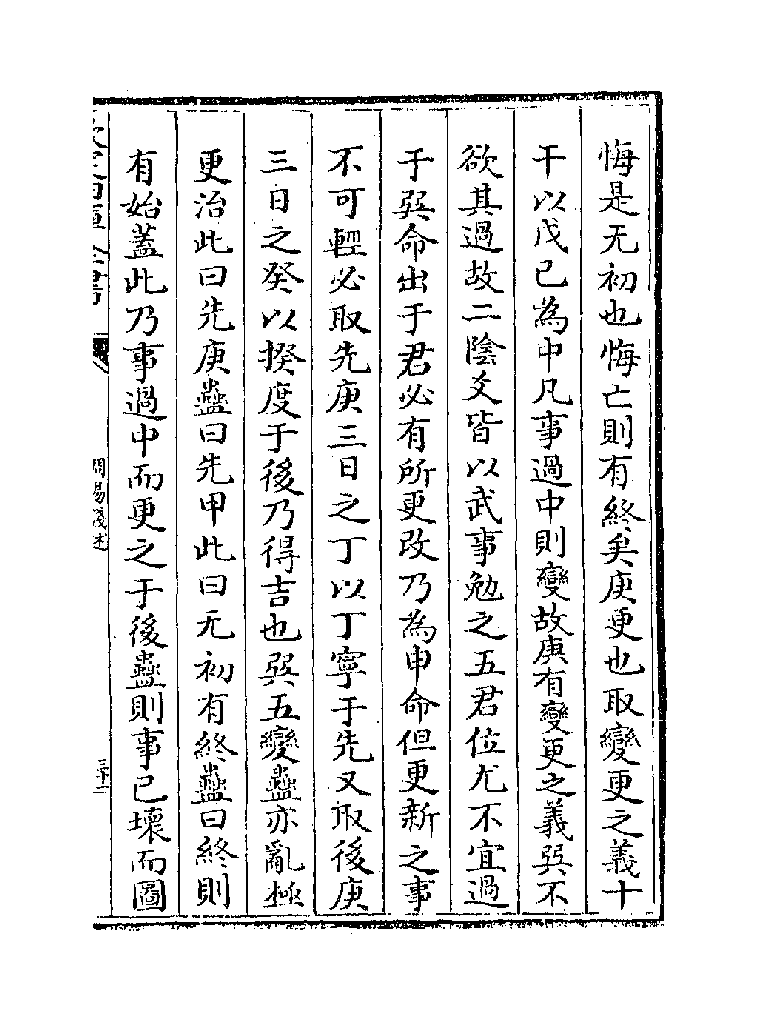 悔是无初也悔亡則有終矣庚更也取變更之義十
干以戊己為中凡事過中則變故庚有變更之義巽不
欲其過故二陰爻皆以武事勉之五君位尤不宜過
于巽命出于君必有所更改乃為申命但更新之事
不可輕必取先庚三日之丁以丁寧于先又取後庚
三日之癸以揆度于後乃得吉也巽五變蠱亦亂極
更治此曰先庚蠱曰先甲此曰无初有終蠱曰終則
有始蓋此乃事過中而更之于後蠱則事已壞而圖
周易淺述